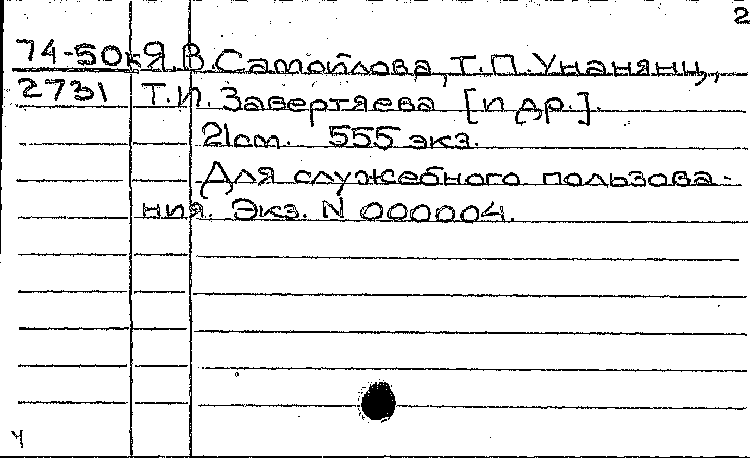 2
74-50к Я.В.Самойлова, Т.П.Унанянц,
2731 Т.И.Завертяева [и др.].
21см. 555 экз.
Для служебного пользова-
ния. Экз. N 000004.
ч